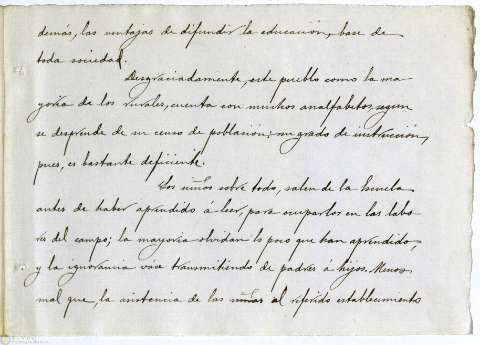 demás, las ventajas de difundir la educación, base de
toda sociedad.
Desgraciadamente, este pueblo como la ma-
yoría de los rurales, cuenta con muchos analfabetos, segun
se desprende de su censo de población; su grado de instrucción,
pues, es bastante deficiente.
Los niños sobre todo, salen de la Escuela
antes de haber aprendido á leer, para ocuparlos en las labo-
res del campo; la mayoria olvidan lo poco que han aprendido,
y la ignorancia váse transmitiendo de padres á hijos. Menos
mal que, la asistencia de las niñas al referido establecimiento